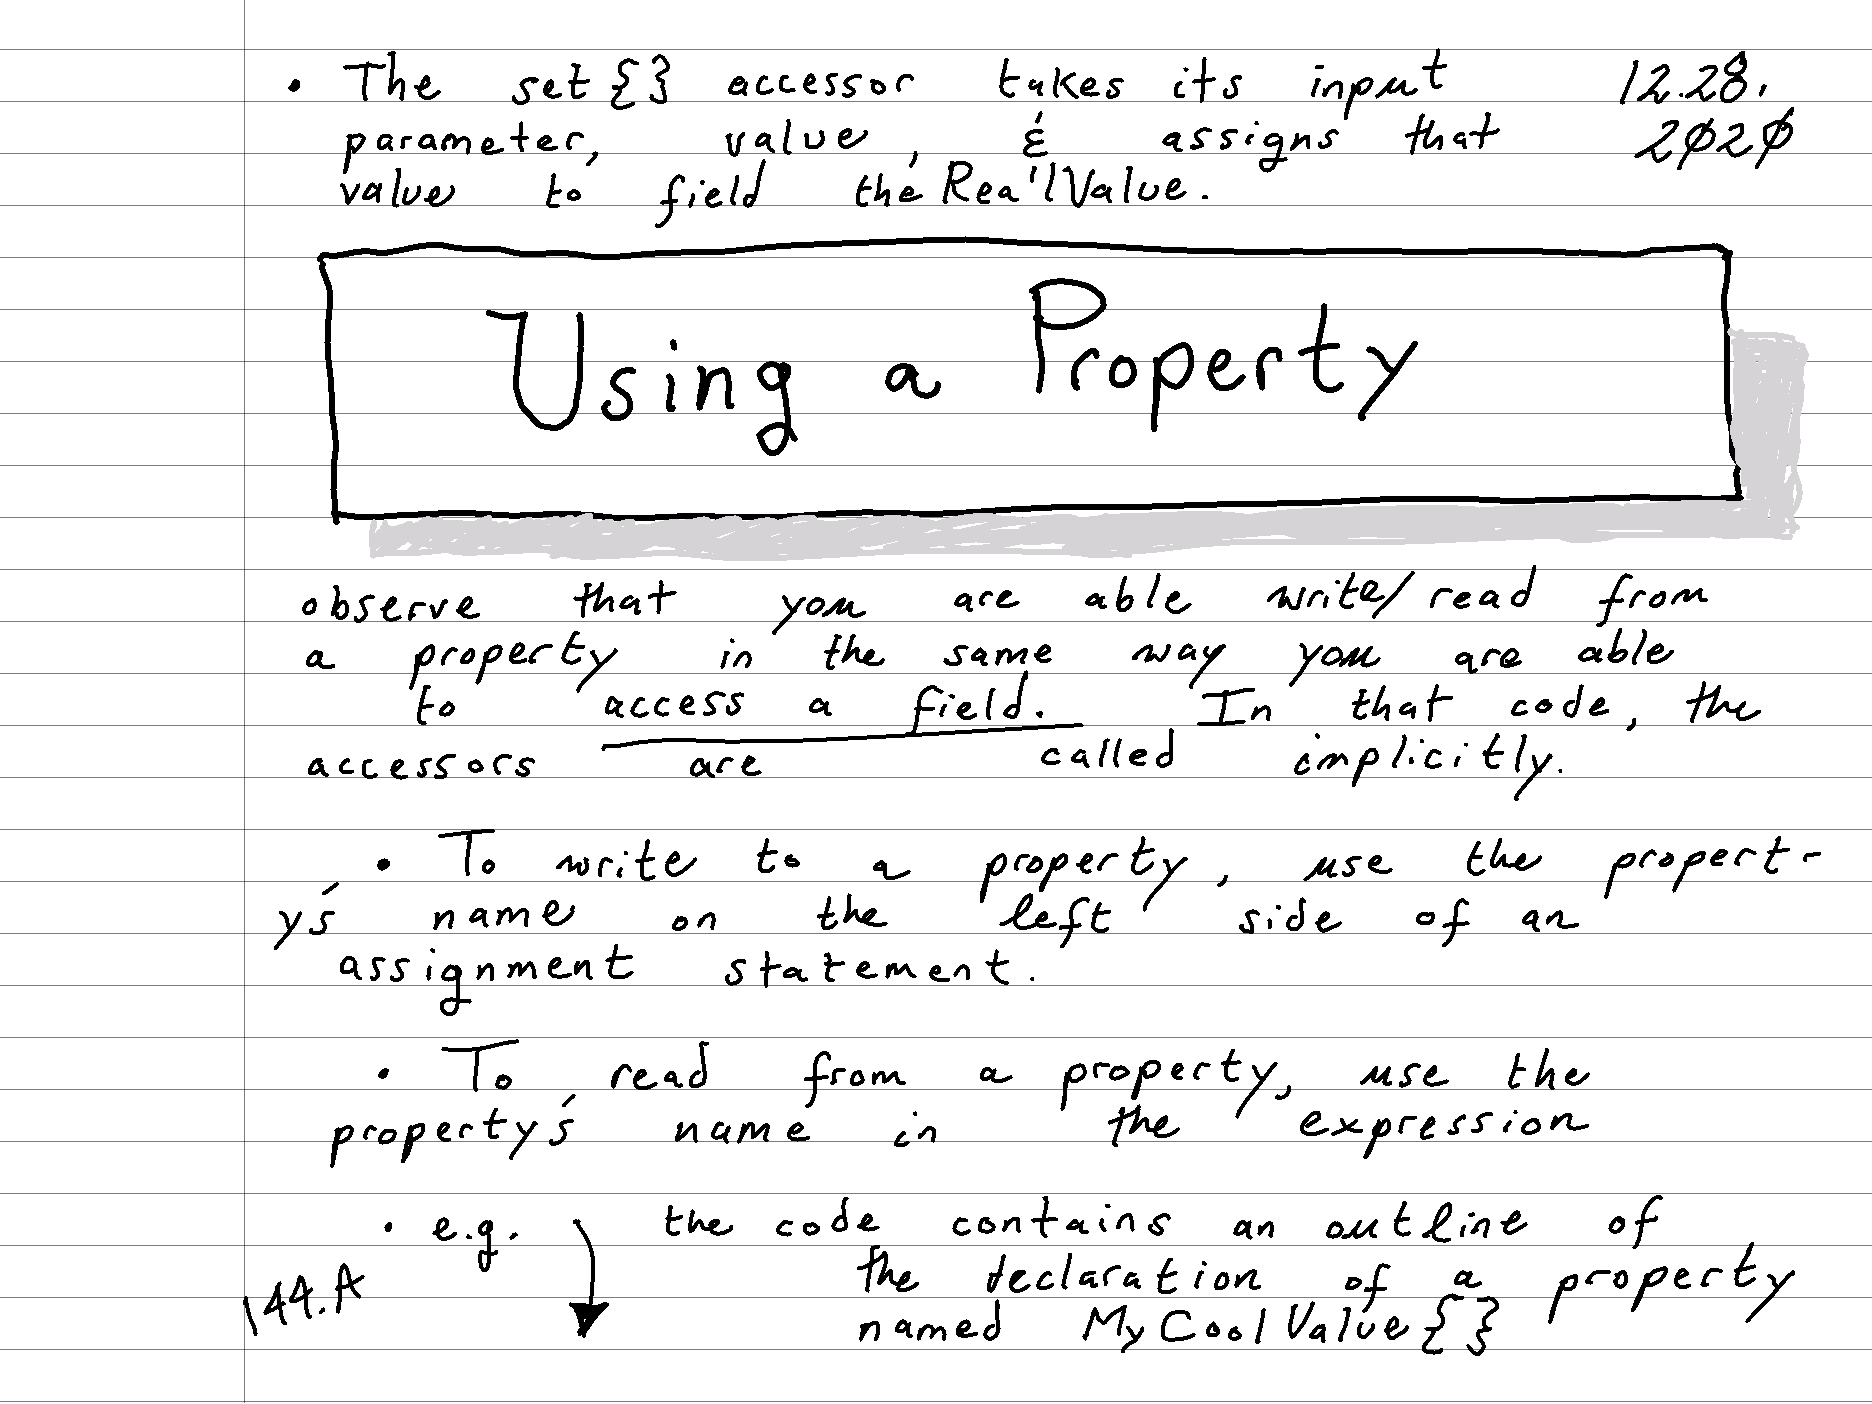 • The set{} accessor takes its input 12.28.
parameter, value, & assigns that 2020
value to field theRea'lValue.
Using a Property
observe that you are able write/read from
a property in the same way you are able
to access a field. In that code, the
accessors are called implicitly.
• To write to a property, use the propert-
y's name on the left side of an
assignment statement.
• To read from a property, use the
property's name in the expression
• e.g. the code contains an outline of
the declaration of a property
144.A named MyCoolValue{}